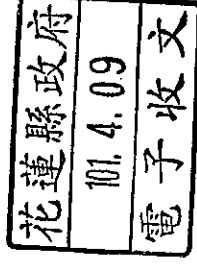 花蓮縣政府
101. 4. 09
電子收文